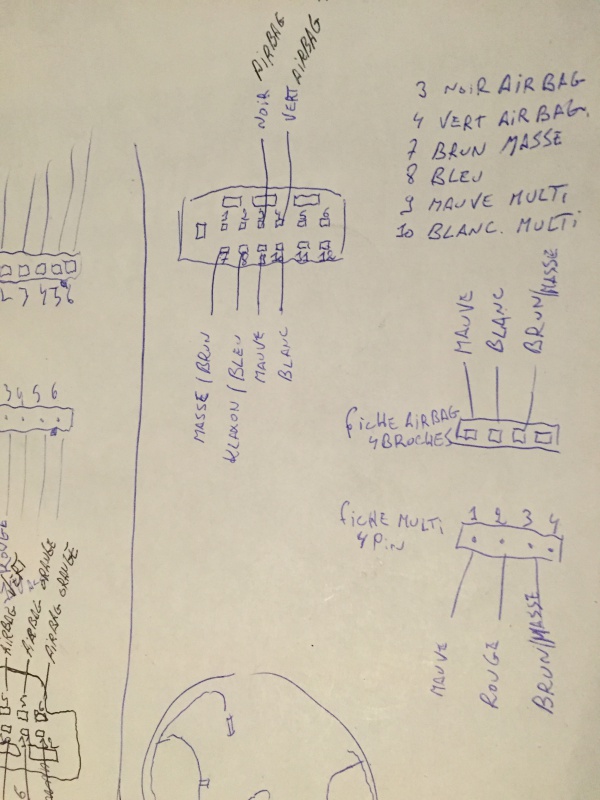 NOIR AIRBAG
VERT AIRBAG
1 2 3 4 5 6
7 8 9 10 11 12
MASSE/BRUN
KLAXON/BLEU
MAUVE
BLANC
3 NOIR AIRBAG
4 VERT AIRBAG.
7 BRUN MASSE
8 BLEU
9 MAUVE MULTI
10 BLANC. MULTI
MAUVE
BLANC
BRUN/MASSE
fiCHE AIRBAG
4 BROCHES
fiCHE MULTI
4 PIN
1 2 3 4
MAUVE
ROUGE
BRUN/MASSE
3 4 5 6
ROUGE
AIRBAG VERT
AIRBAG ORANGE
AIRBAG ORANGE
6